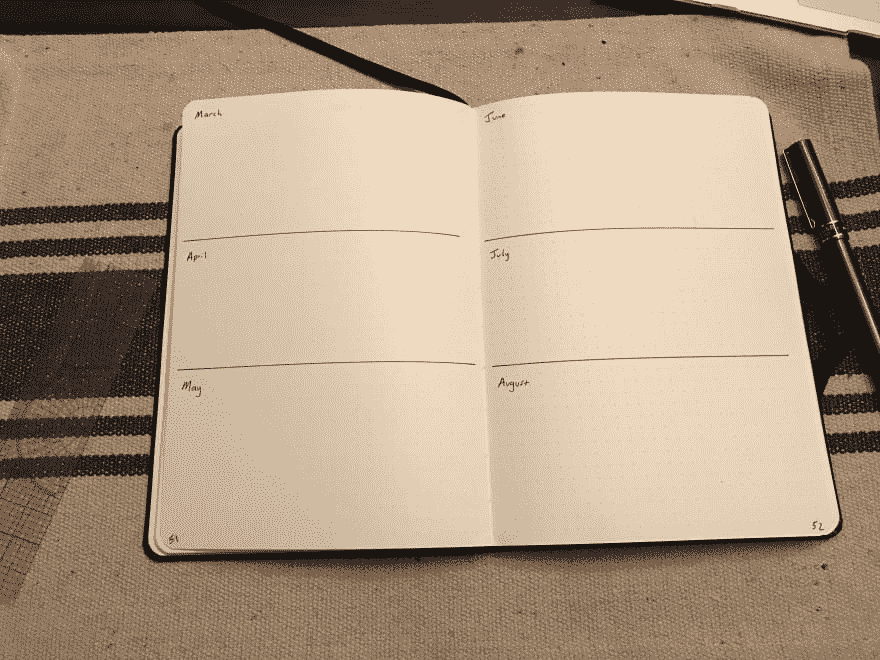 March
April
May
51
June
July
August
52